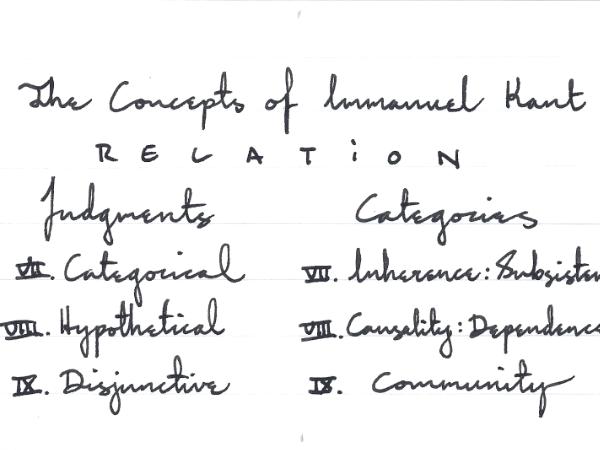 The Concepts of Immanuel Kant
RELATiON
Judgments Categories
VII. Categorical VII. Inherence: Subsisten
VIII. Hypothetical VIII. Causality: Dependence
IX. Disjunctive IX. Community